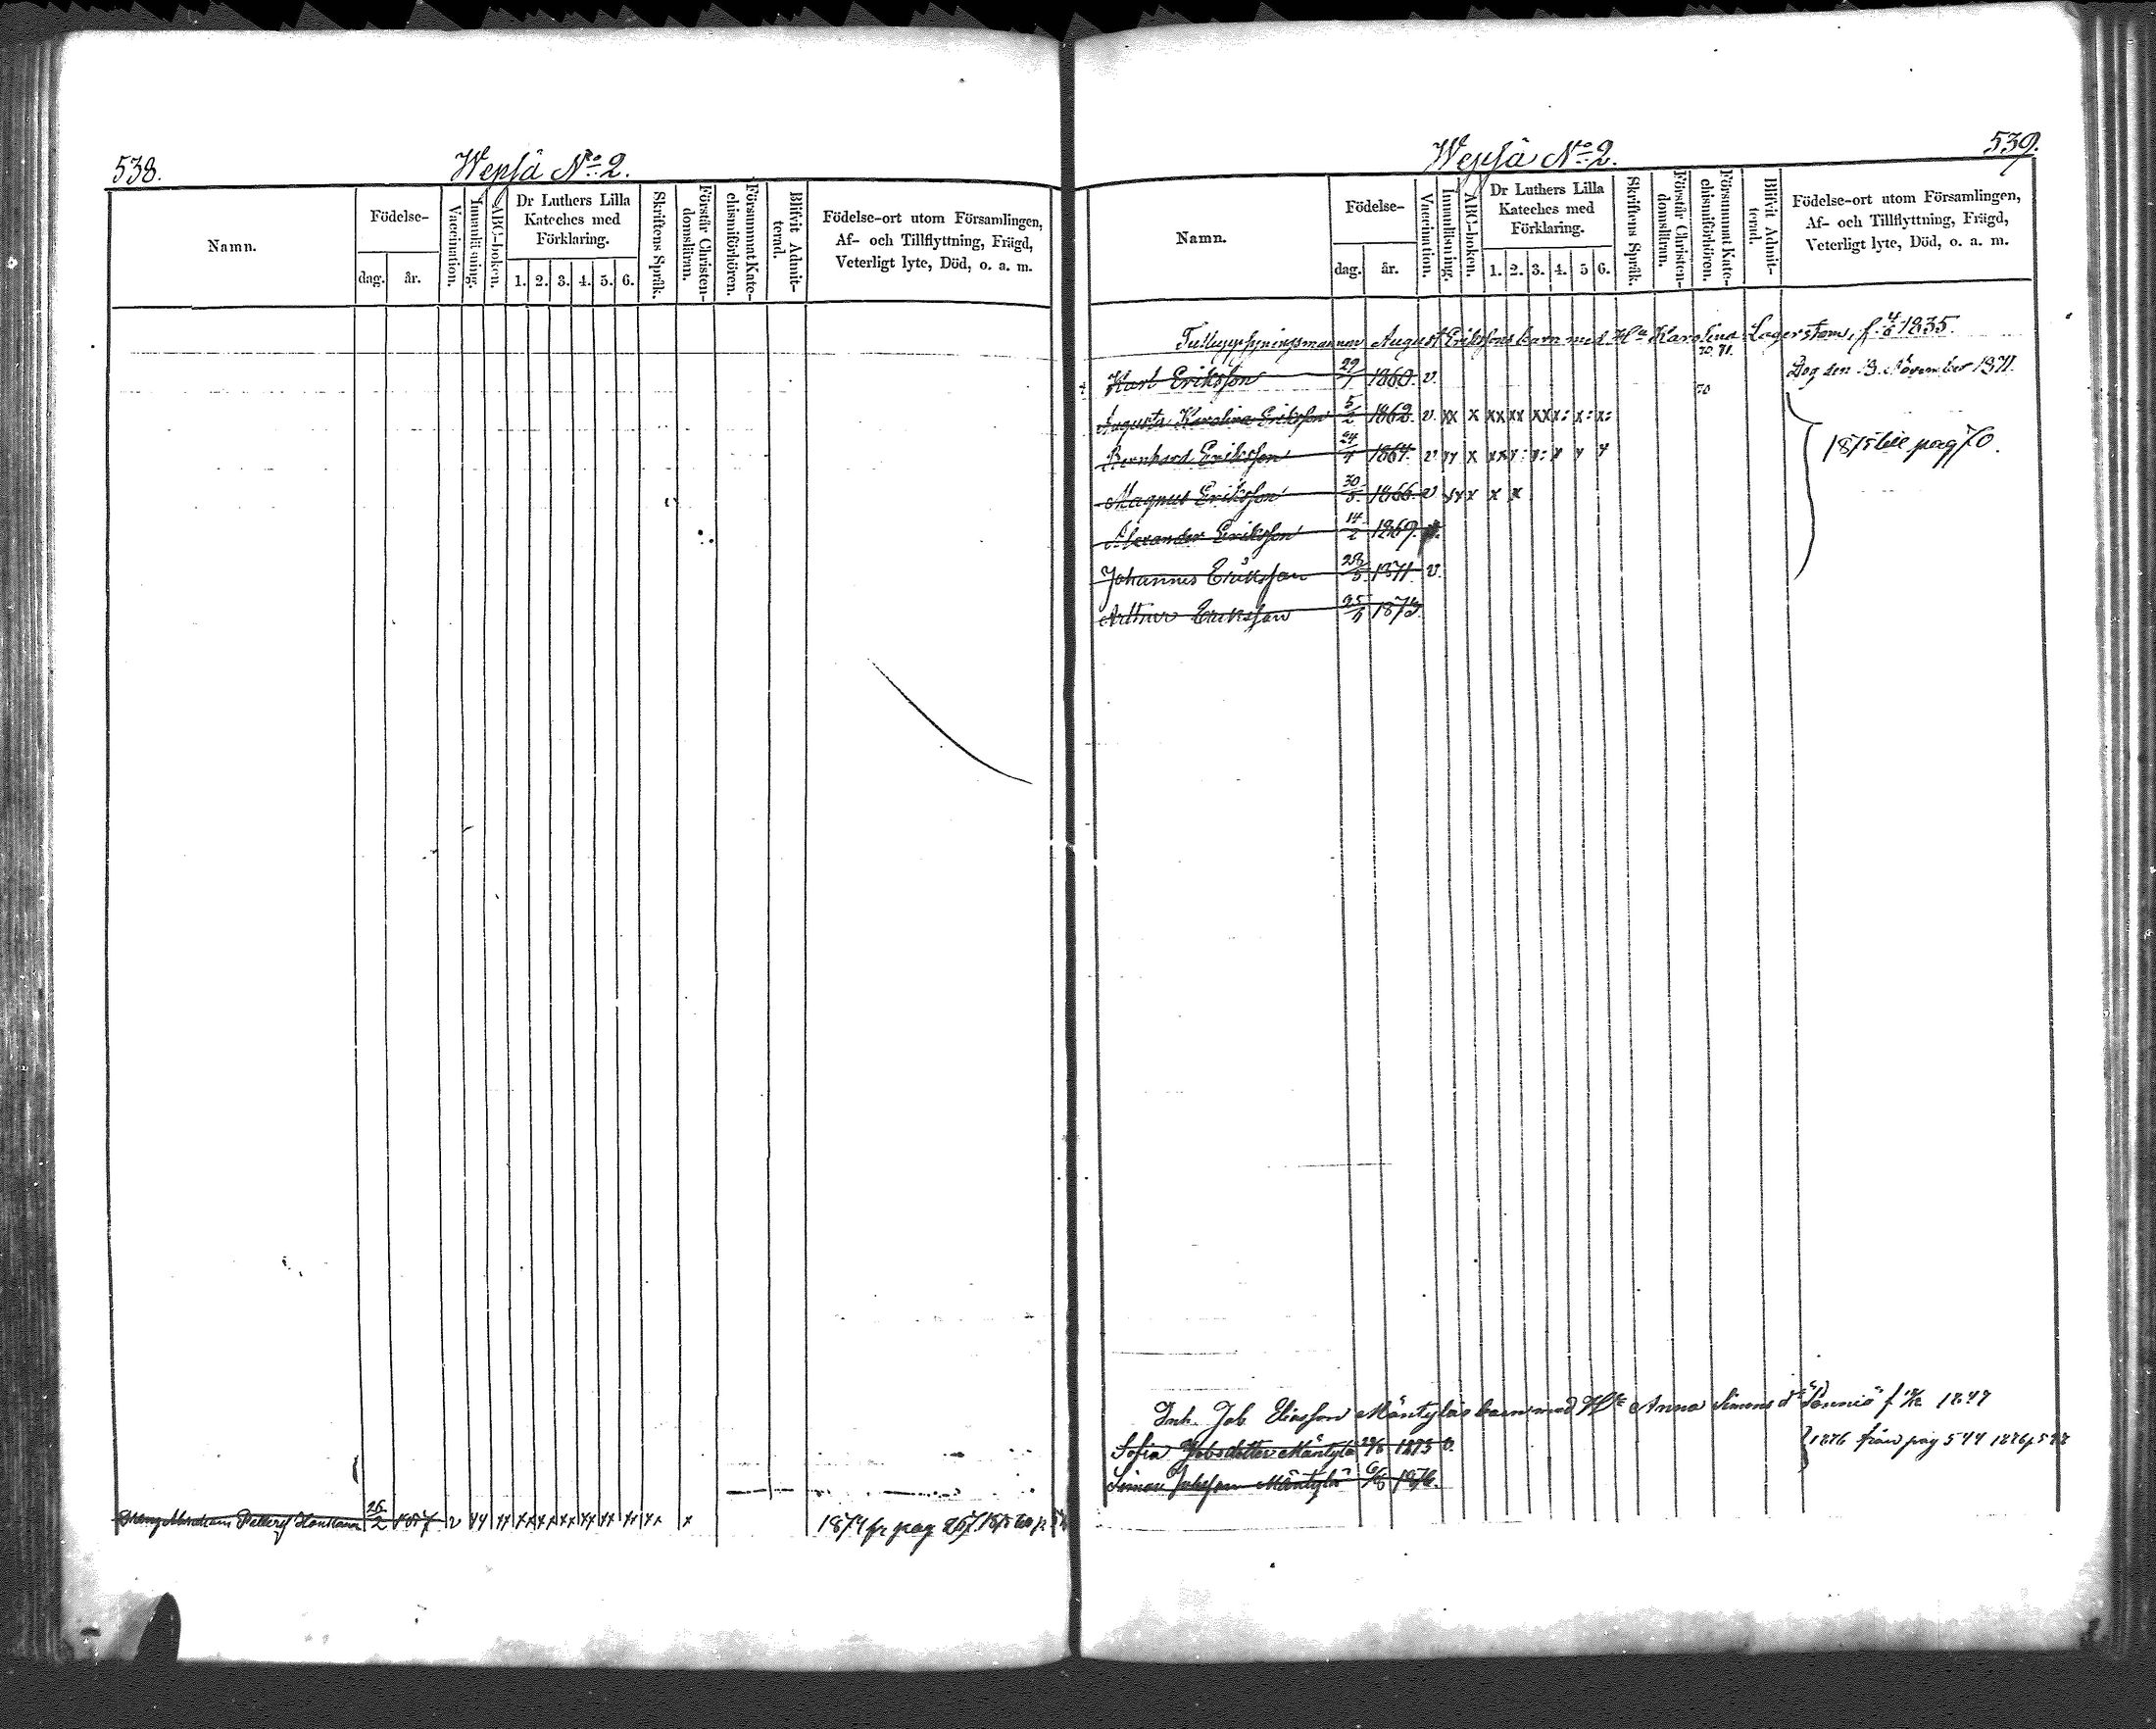 538.
Wepsä No 2.
Namn.
Födelse-
dag.
år.
Vaccination.
Innanläsning.
ABC-boken.
Dr Luthers Lilla
Kateches med
Förklaring.
1. 2. 3. 4. 5. 6.
Skriftens Språk.
Förstår Christen-
domsläran.
Försummat Kate-
chismiförhören.
Blifvit Admit-
terad.
Födelse-ort utom Församlingen,
Af- och Tillflyttning, Frägd,
Veterligt lyte, Död, o. a. m.
Dräng Abraham 26/2 1857 v xx xx xx xx xx xx xx xx xx x 1874 fr pag 267
539.
Wepsä No 2.
Namn.
Födelse-
dag.
år.
Vaccination.
Innanläsning.
ABC-boken.
Dr Luthers Lilla
Kateches med
Förklaring.
1. 2. 3. 4. 5 6.
Skriftens Språk.
Förstår Christen-
domsläran.
Försummat Kate-
chismiförhören.
Blifvit Admit-
terad.
Födelse-ort utom Församlingen,
Af- och Tillflyttning, Frägd,
Veterligt lyte, Död, o. a. m.
August Erikssons barn med Hu Karolina Lagerstom, f. 1835.
Karl Eriksson 29/1 1860. v. 70. 71. Dog den 3. November 1871.
Augusta Karolina Eriksson 5/2 1862. v. xx x xx xx xx x: x: x: 70
Bernhard Eriksson 24/4 1864. v 1875 till pag 70.
Magnus Eriksson 30/5. 1866. v xx x x x
Alexander Eriksson 14/2 1869.
Johannes Eriksson 28/5 1871. v.
Arthur Eriksson 25/9 1873.
Inh. Job Eliasson Mäntyläs barn med Hu Anna Simons dr
Sofia Jobsdotter Mäntylä 1873 v. 1876 från pag 544
Simon Jobsson Mäntylä 6/6 1876.